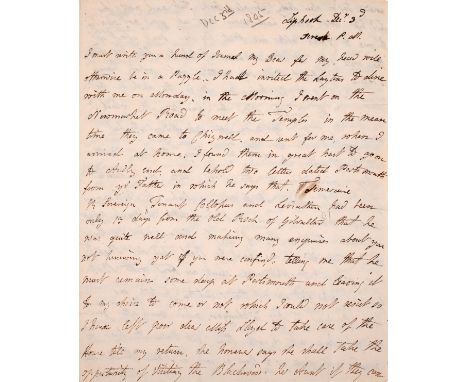 Dec 5th 1805
Liphook Decr 3d
P.M.
I must write you a kind of Journal my Dear for my Head will
otherwise be in a Puzzle. I had invited the Laytons to dine
with me on Monday, in the Morning I went on the
Newmarket Road to meet the Temples in the mean
time they came to Chigwell and sent for me, when I
arrived at home, I found them in great hast to gone
to and behold two letters dated Portsmouth
from yr Father in which he says that Temeraire
Sovereign Tonnant Colossus and Leviathan had been
only 14 days from the old Rock of Gibraltar that he
was quite well and making many enquiries about you
not knowing yet if you were confined, telling me that he
must remain some days at Portsmouth and leaving it
to my choice to come or not which I could not resist so
I have left poor dear Miss Lloyd to take care of the
House till my return, he Honora says she shall take the
opportunity of Visiting the he want if they can